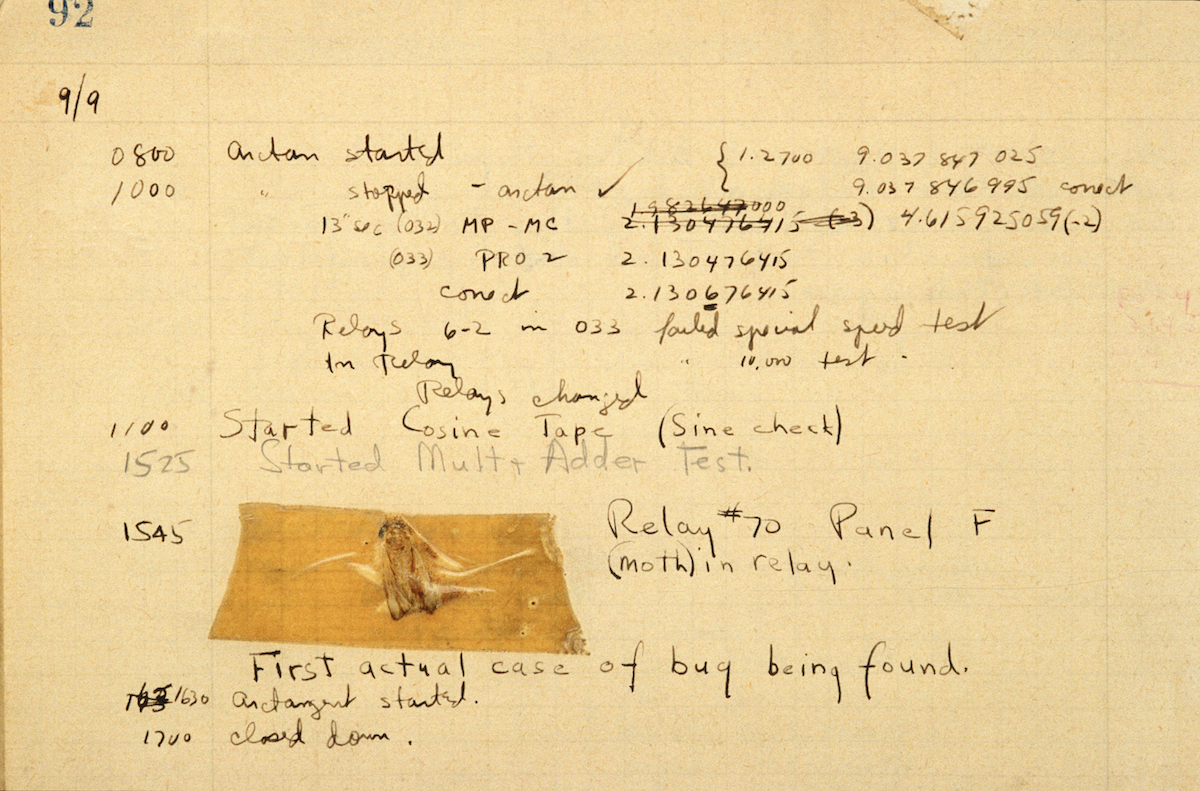 92
9/9
0800 arctan started { 1.2700 9.037 847 025
1000 " stopped - arctan ✓ 9.037 846 995 conect
13" sec (032) MP - MC 2.130476415 (-3) 4.615925059(-2)
(033) PRO 2 2.130476415
conect 2.130676415
Relays 6-2 in 033 failed special speed test
In Relay " 10,000 test.
Relays changed
1100 Started Cosine Tape (Sine check)
1525 Started Mult + Adder Test.
1545 Relay #70 Panel F
(moth) in relay.
First actual case of bug being found.
1630 arctangent started.
1700 closed down.